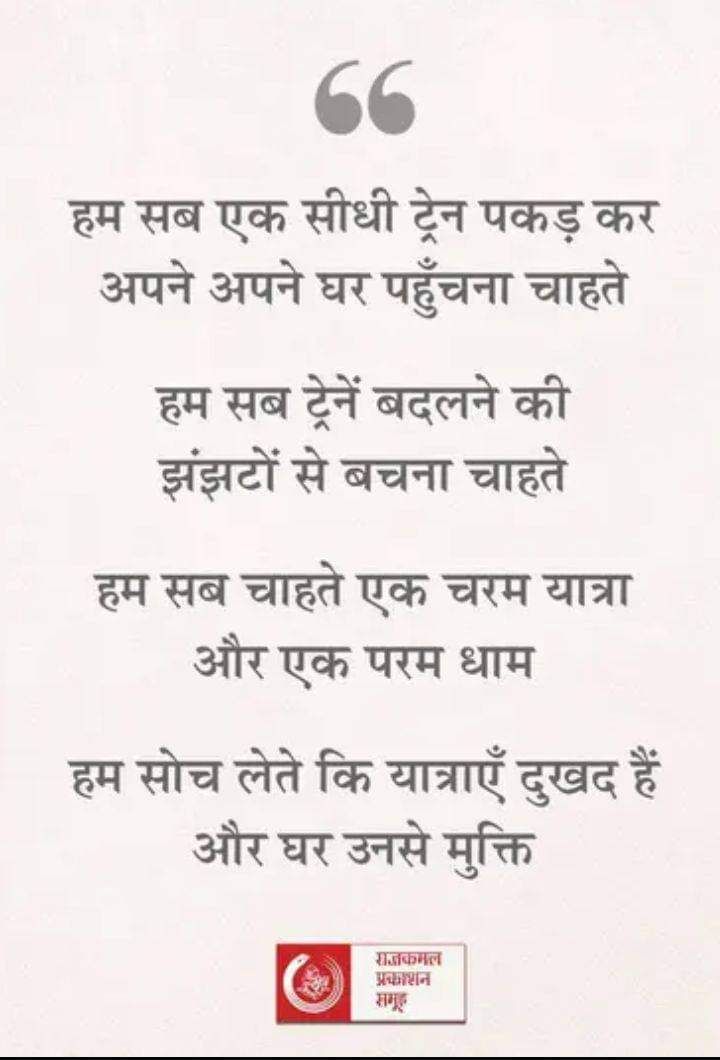 हम सब एक सीधी ट्रेन पकड़ कर
अपने अपने घर पहुँचना चाहते
हम सब ट्रेनें बदलने की
झंझटों से बचना चाहते
हम सब चाहते एक चरम यात्रा
और एक परम धाम
हम सोच लेते कि यात्राएँ दुखद हैं
और घर उनसे मुक्ति
राजकमल
प्रकाशन
समूह